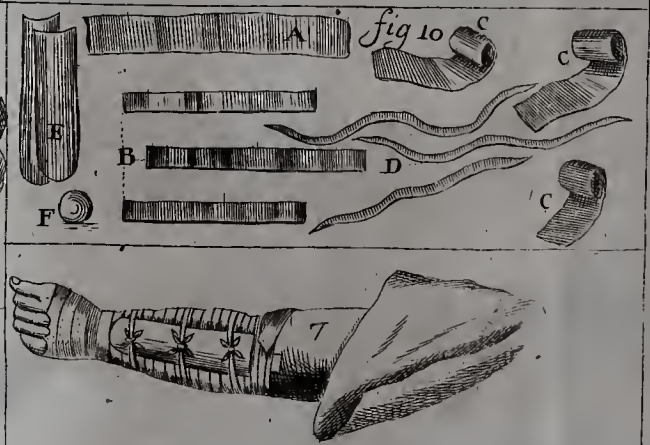 A fig 10 C
C
E
B D
F C
7